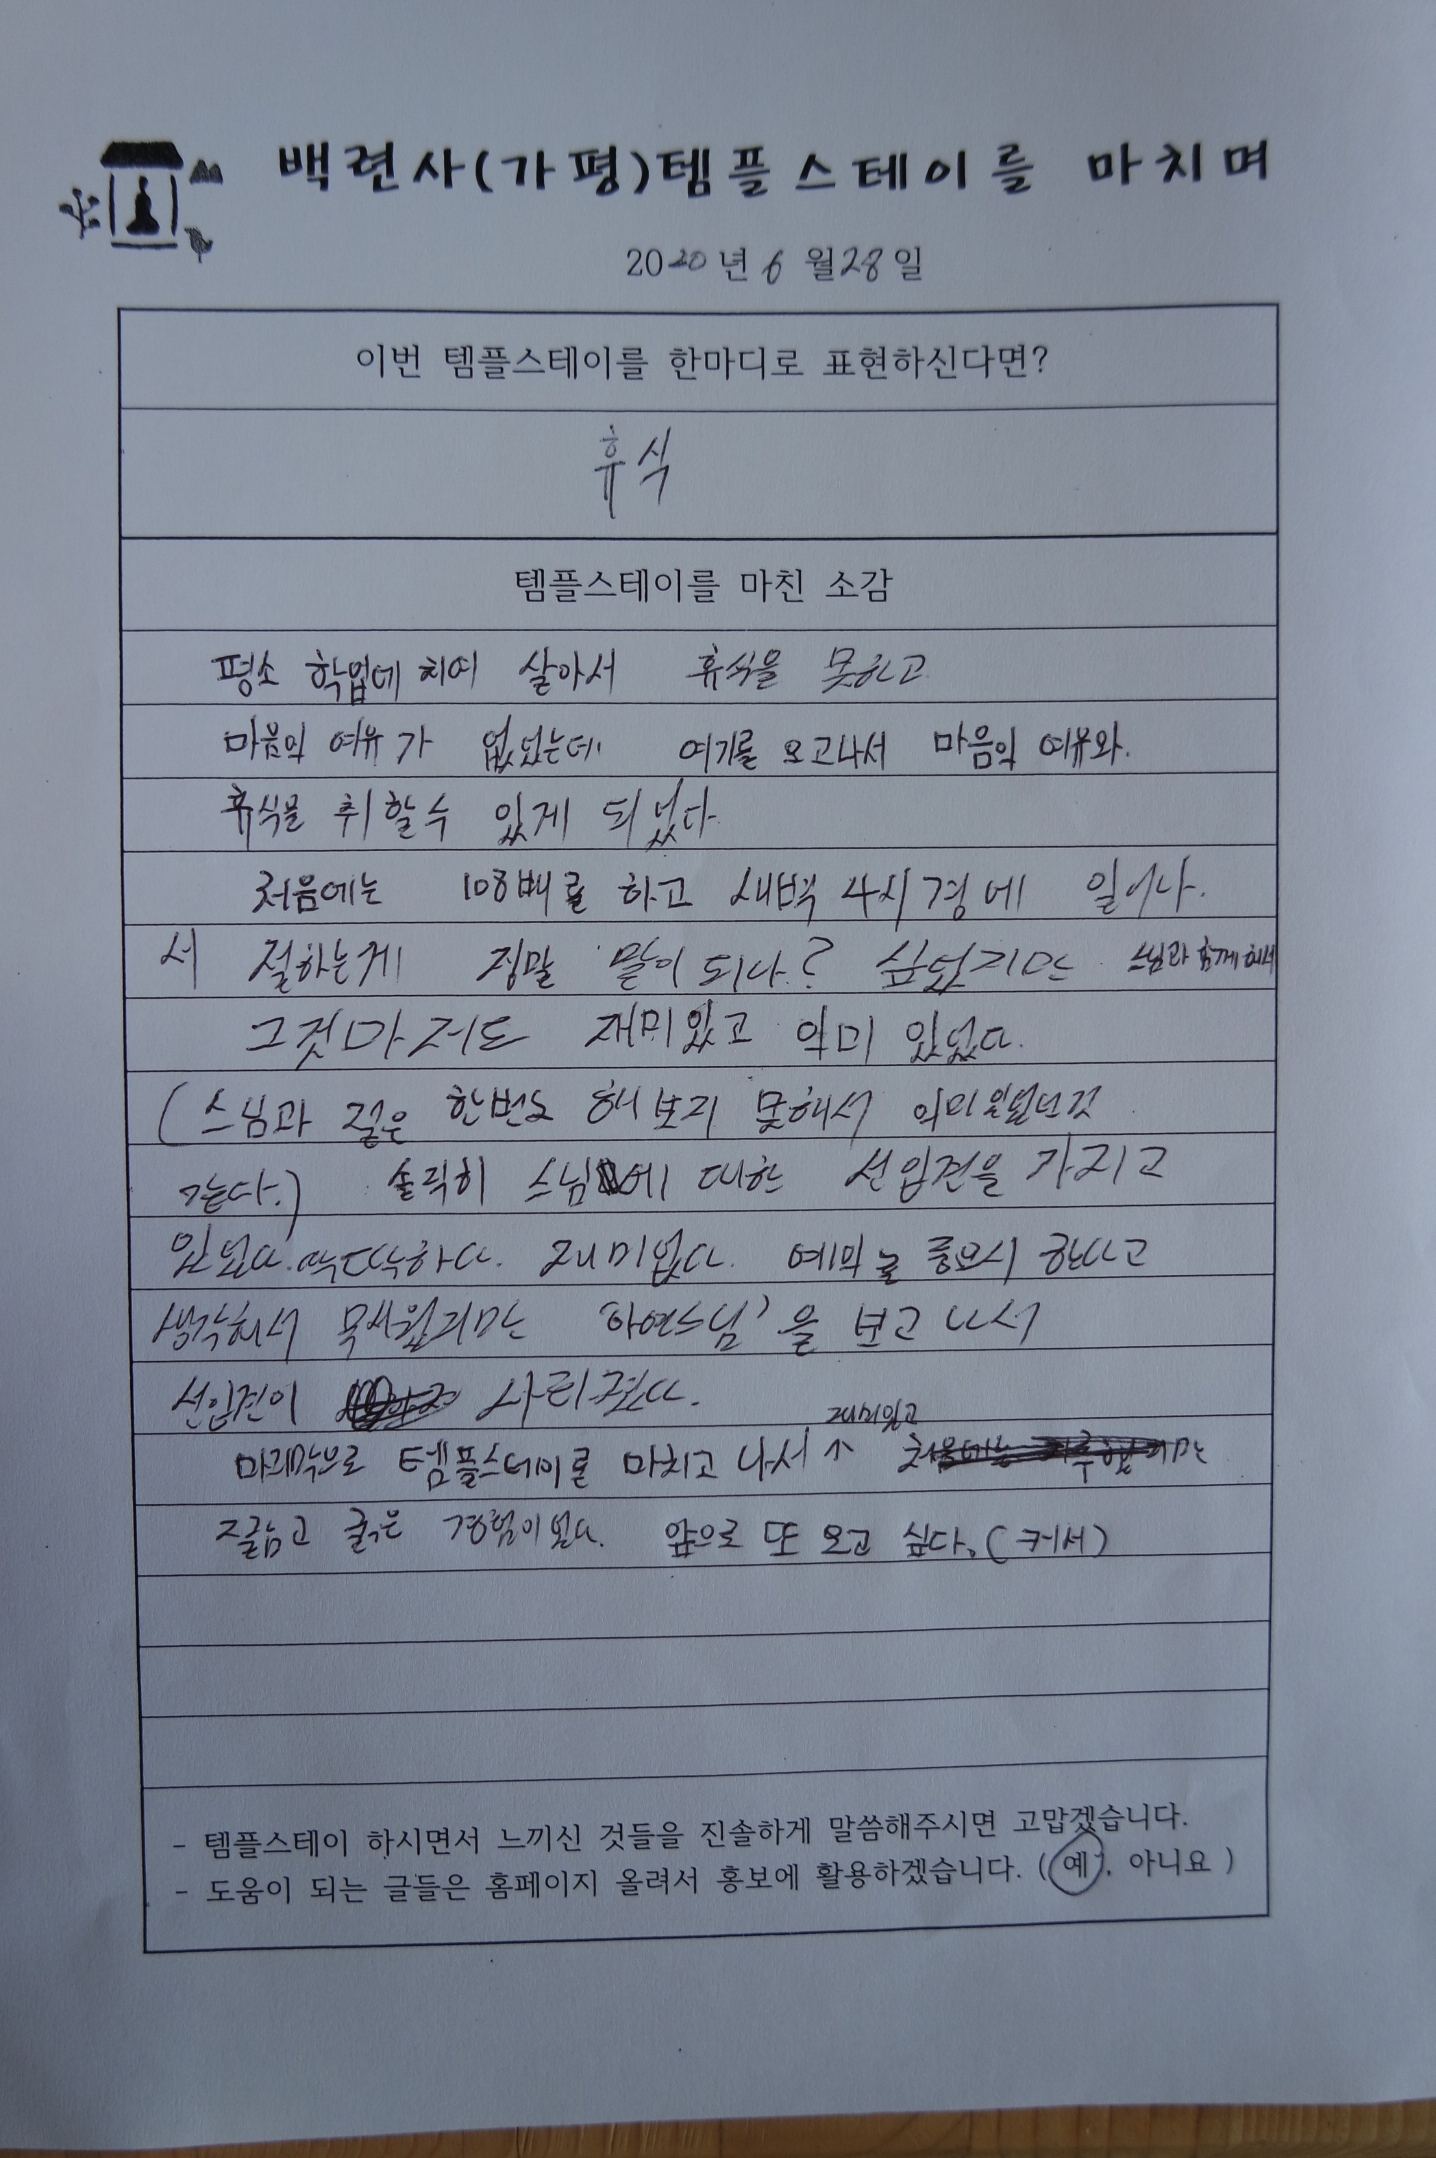 백련사(가평)템플스테이를 마치며
2020년 6월 28일
이번 템플스테이를 한마디로 표현하신다면?
휴식
템플스테이를 마친 소감
평소 학업에 치여 살아서 휴식을 못하고
마음의 여유가 없었는데 여기를 오고나서 마음의 여유와
휴식을 취할수 있게 되었다
처음에는 108배를 하고 새벽 4시경에 일어나
서 절하는게 정말 말이 되나? 싶었지만 스님과 함께 해서
그것마저도 재미있고 의미 있었다.
(스님과 절은 한번도 해보지 못해서 의미있었던것
같다.) 솔직히 스님에 대한 선입견을 가지고
있었다. 딱딱하다. 재미없다. 예의를 중요시 한다고
생각해서 무서웠지만 '하연스님'을 보고 나서
선입견이 사라졌다.
마지막으로 템플스테이를 마치고 나서 재미있고
즐겁고 굵은 경험이었다. 앞으로 또 오고 싶다. (커서)
- 템플스테이 하시면서 느끼신 것들을 진솔하게 말씀해주시면 고맙겠습니다.
- 도움이 되는 글들은 홈페이지 올려서 홍보에 활용하겠습니다. ( 예 , 아니요 )